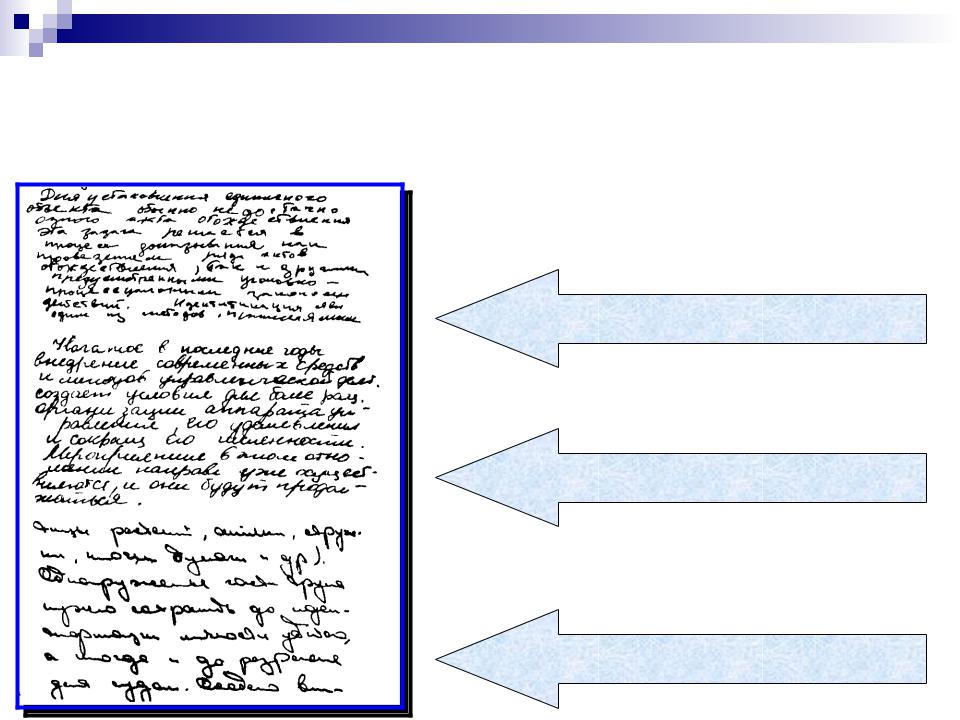 Для установления единичного
объекта обычно не достачно
одного акта отождествления
эта задача решается в
процессе доказывания или
проведением ряда актов
отождествления, так и другими
предусмотренными уголовно-
процессуальным законом
действий. Идентификация
один из методов,
Начатое в последние годы
внедрение современных средств
и методов управленческой деят.
создает условия для более рац.
организации аппарата уп-
равления, его удешевления
и сокращ его численности.
Мероприятия в этом отно-
шении направл уже осущест-
вляются, и они будут продол-
жаться.
растений,
ки, клочки бумаги и др).
Обнаруженные части трупа
нужно сохранить до иден-
личности убитого,
а иногда и до разрешения
дела судом.